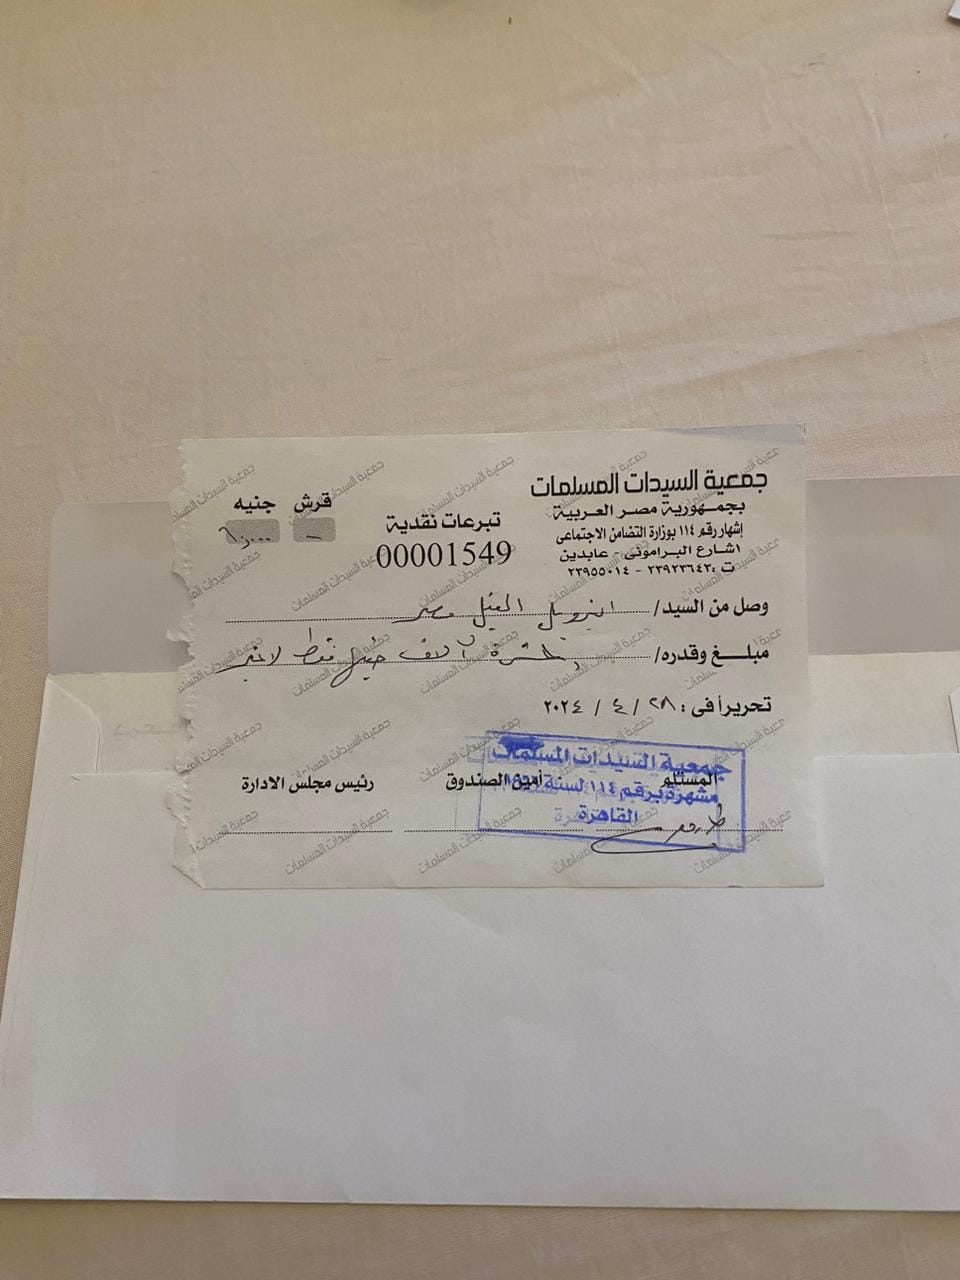 جمعية السيدات المسلمات
بجمهورية مصر العربية
إشهار رقم ١١٤ بوزارة التضامن الاجتماعى
١شارع البرامونى - عابدين
ت : ٢٣٩٢٣٦٤٣ - ٢٣٩٥٥٠١٤
تبرعات نقدية
00001549
قرش جنيه
- ١٠,٠٠٠
وصل من السيد/ النيل مصر
مبلغ وقدره/ عشرة آلاف جنيه فقط لاغير
تحريرأفى : ٢٨ / ٤ / ٢٠٢٤
المستلم أمين الصندوق رئيس مجلس الادارة
جمعية السيدات المسلمات
مشهرة برقم ١١٤ لسنة
القاهرة